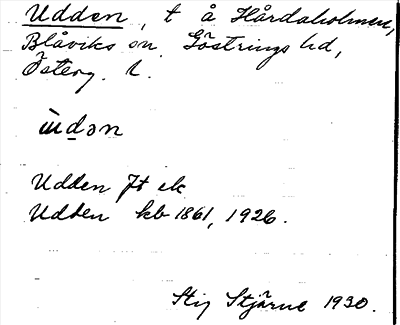 Udden, t å Hårdaholmen,
Blåviks sn, Göstrings hd,
Österg. l.
ùdən
Udden Jt ek
Udden kb 1861, 1926.
Stig Stjärne 1930.